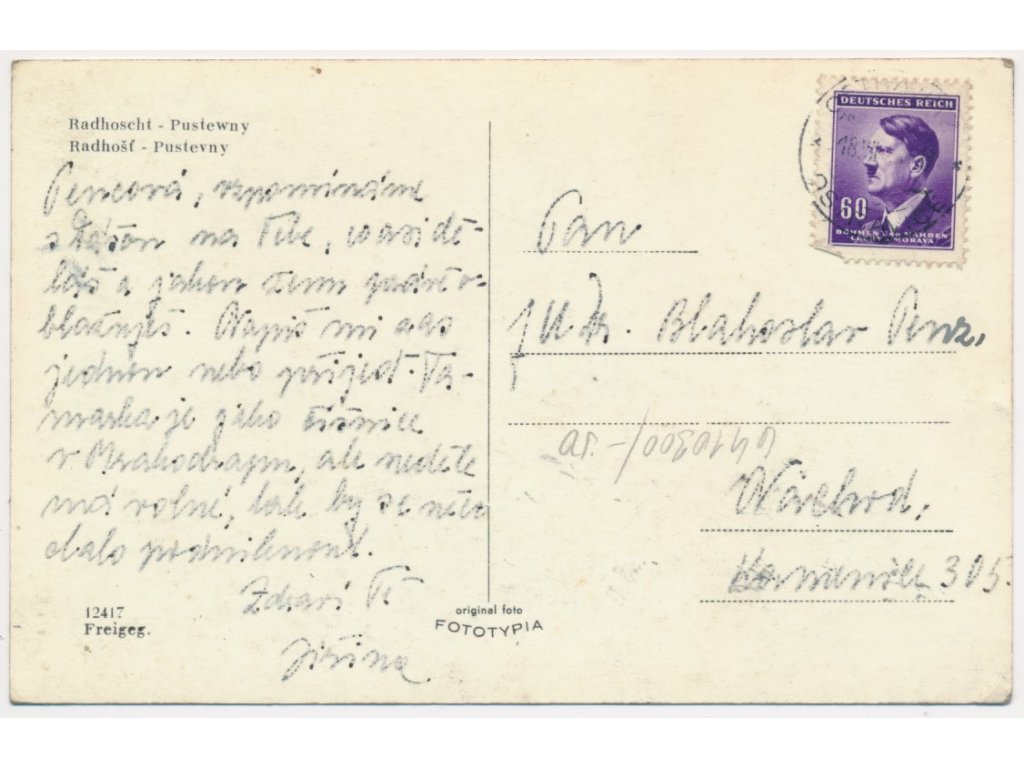 Radhoscht - Pustewny
Radhošť - Pustevny
Pencová, vzpomínáme
na Tebe, co asi dě-
láš a jakou zemi
. Napiš mi zas
jednou nebo přijeď. Ta-
marka je jako číšnice
v , ale neděle
má volné, tak by se něco
dalo podniknout.
Zdraví Tě
Jiřina
12417
Freigeg.
original foto
FOTOTYPIA
DEUTSCHES REICH
60
BÖHMEN UND MÄHREN
ČECHY A MORAVA
18.
Pan
JUDr. Blahoslav Penz.
6410300/-
Náchod.
305.